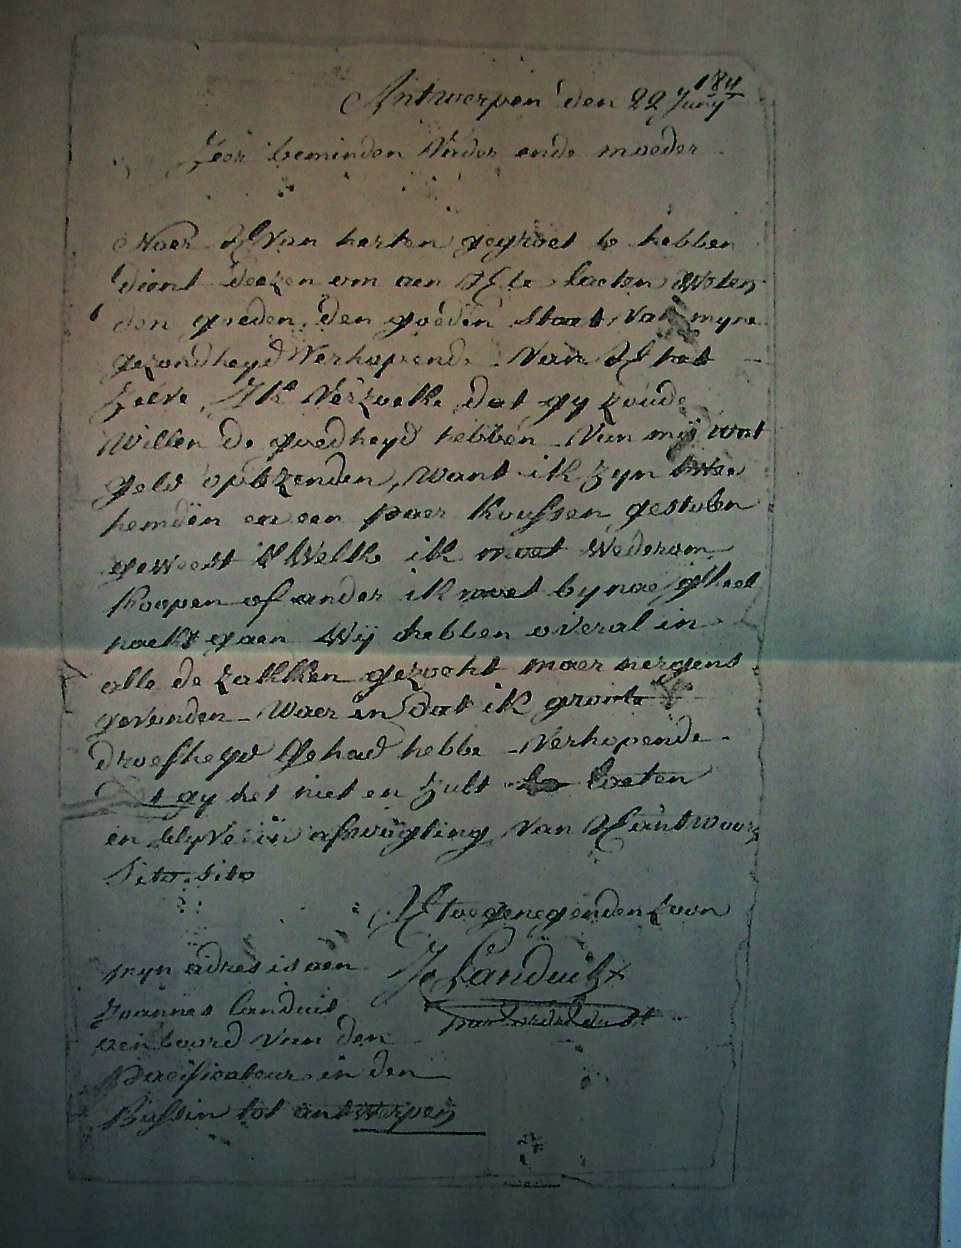 Antwerpen den 22 Juny 1811
Zeer beminden Vader ende moeder
Naer UE van herten gegroet te hebben
dient deezen om aen UE te laeten weten
den goeden staet van myne
gezondheyd Verhopende van UE tot
Ik Verzoeke dat gy zoude
Willen de goedheyd hebben van mij wat
geld op te zenden, want ik zyn twee
hemden en een paer koussen gestolen
geweest 't Welk ik moet Wederom
koopen of ander ik moet bynae g'heel
naekt gaen Wij hebben overal in
alle de zakken gezocht maer nergens
gevonden Waer in dat ik groote
droefheyd Gehad hebbe Verhopende
gy het niet en zult laeten
en blyve in afwagting van UE antwoord
Sito sito
UE toegenegenden zoon
J Landuijt
myn adres is aen
Joannes landuit
aen boord van den
Pacificateur in den
Bassin tot antwerpen